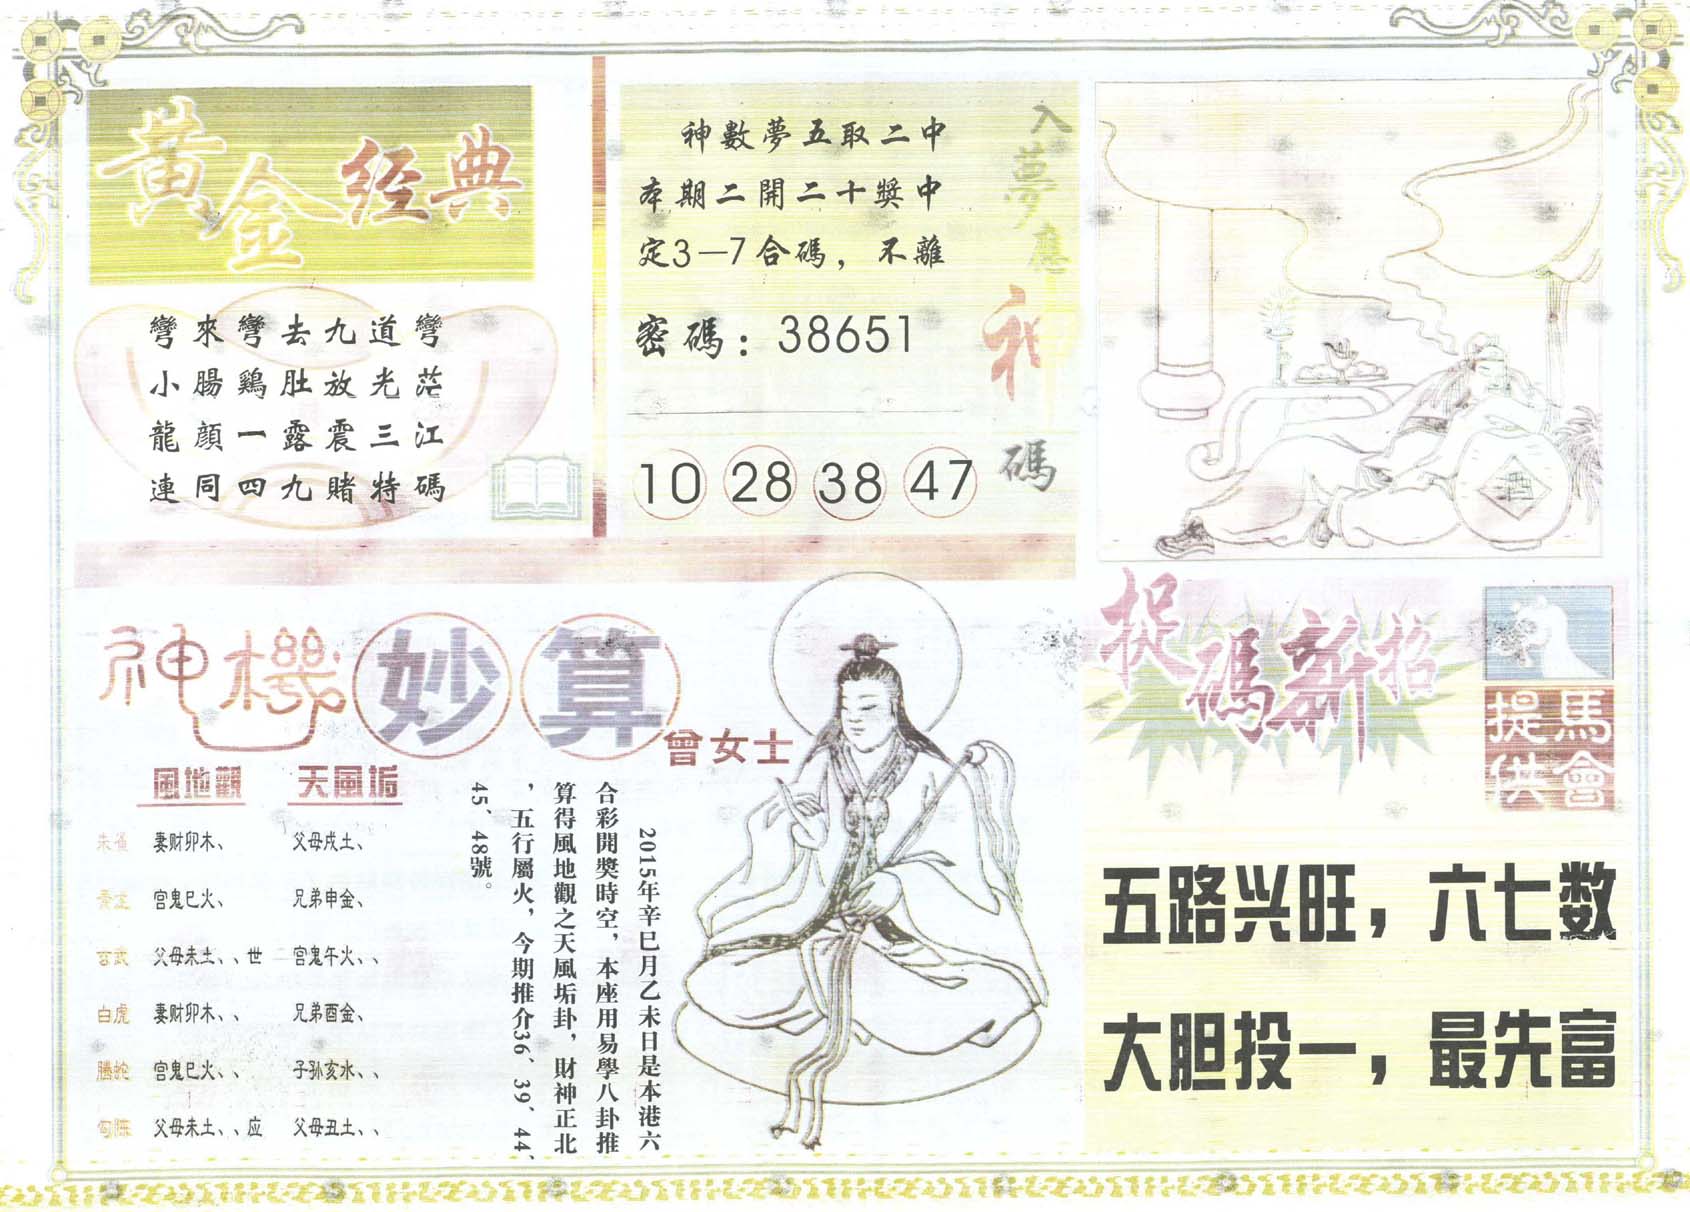 黃金經典
彎來彎去九道彎
小腸鷄肚放光茫
龍顔一露震三江
連同四九賭特碼
神數夢五取二中
本期二開二十獎中
定3—7合碼，不離
密碼：38651
10 28 38 47
入夢應神碼
酒
神機妙算
曾女士
風地觀 天風垢
朱雀 妻财卯木、 父母戍土、
青龙 官鬼巳火、 兄弟申金、
玄武 父母未土、、世 二 官鬼午火、、
白虎 妻财卯木、、 兄弟酉金、
腾蛇 官鬼巳火、、 子孙亥水、、
勾陈 父母未土、、应 父母丑土、、
2015年辛巳月乙未日是本港六
合彩開獎時空，本座用易學八卦推
算得風地觀之天風垢卦，財神正北
，五行屬火，今期推介36、39、44、
45、48號。
捉碼新招
馬會提供
五路兴旺，六七数
大胆投一，最先富